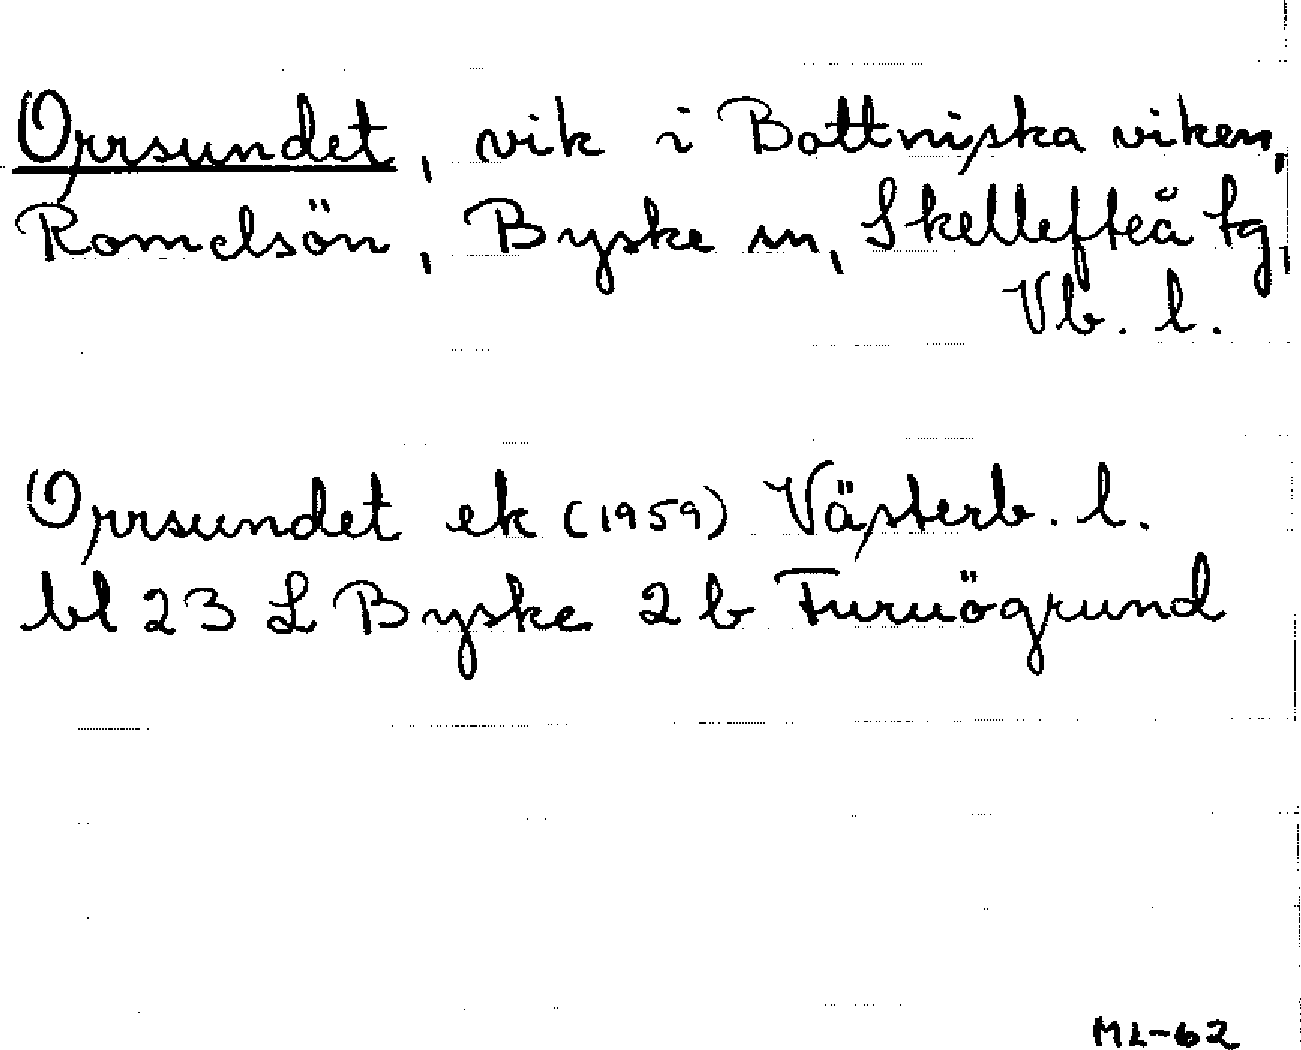 Orrsundet, vik i Bottniska viken,
Romelsön, Byske sn, Skellefteå tg,
Vb. l.
Orrsundet ek (1959) Västerb. l.
bl 23 L Byske 2 b Furuögrund
ML-62